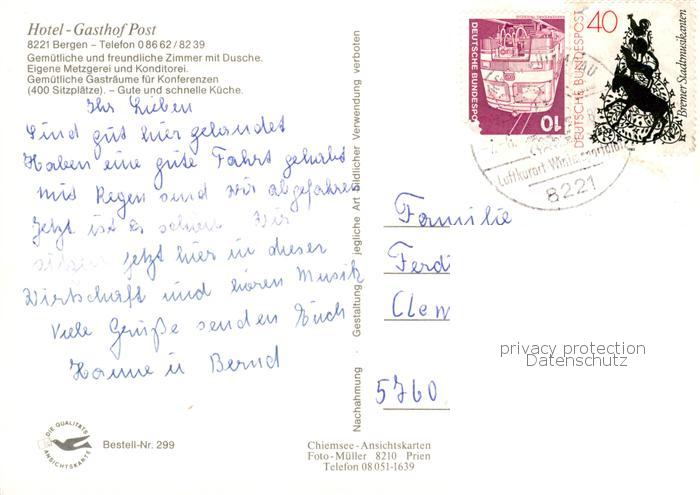 Hotel - Gasthof Post
8221 Bergen – Telefon 0 86 62 / 82 39
Gemütliche und freundliche Zimmer mit Dusche.
Eigene Metzgerei und Konditorei.
Gemütliche Gasträume für Konferenzen
(400 Sitzplätze). – Gute und schnelle Küche.
Ihr Lieben
Sind gut hier gelandet
Haben eine gute Fahrt gehabt
mit Regen sind wir abgefahren
Jetzt ist es schön Wir
sitzen jetzt hier in dieser
Wirtschaft und hören Musik
Viele Grüße senden Euch
Hanne u Bernd
DIE QUALITÄTS
ANSICHTSKARTE
Bestell-Nr. 299
Nachahmung Gestaltung jegliche Art bildlicher Verwendung verboten
DEUTSCHE BUNDESPOST
10
40
DEUTSCHE BUNDESPOST
Bremer Stadtmusikanten
Luftkurort
8221
Familie
Ferd
Clem
5760
privacy protection
Datenschutz
Chiemsee-Ansichtskarten
Foto-Müller 8210 Prien
Telefon 08 051-1639